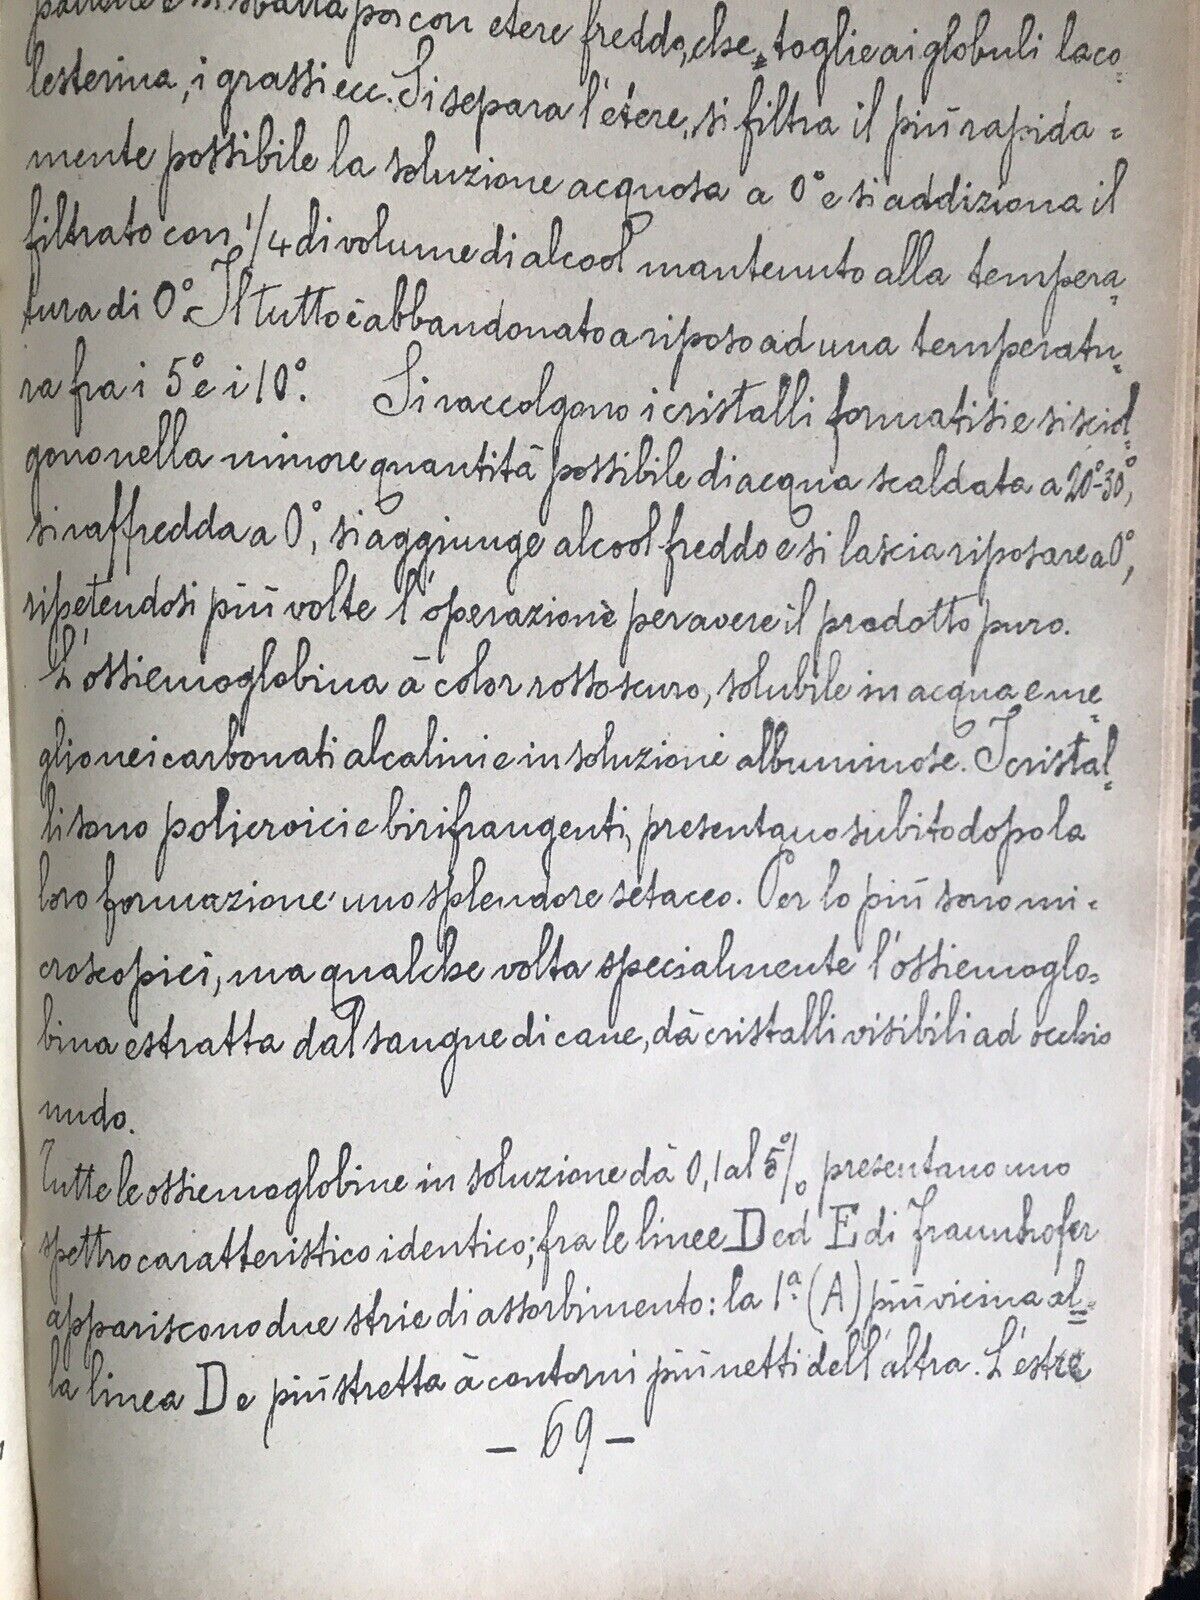 e si sbatta poi con etere freddo, che toglie ai globuli la co=
lesterina, i grassi ecc. Si separa l'etere, si filtra il più rapida=
mente possibile la soluzione acquosa a 0° e si addiziona il
filtrato con 1/4 di volume di alcool mantenuto alla tempera=
tura di 0°. Il tutto è abbandonato a riposo ad una temperatu=
ra fra i 5° e i 10°. Si raccolgono i cristalli formatisi e si sciol=
gono nella minore quantità possibile di acqua scaldata a 20°-30°,
si raffredda a 0°, si aggiunge alcool freddo e si lascia riposare a 0°,
ripetendosi più volte l'operazione per avere il prodotto puro.
L'ossiemoglobina à color rosso scuro, solubile in acqua e me=
glio nei carbonati alcalini e in soluzioni albuminose. I cristal=
li sono policroici e birifrangenti, presentano subito dopo la
loro formazione uno splendore setaceo. Per lo più sono mi=
croscopici, ma qualche volta specialmente l'ossiemoglo=
bina estratta dal sangue di cane, dà cristalli visibili ad occhio
nudo.
Tutte le ossiemoglobine in soluzione dà 0,1 al 5% presentano uno
spettro caratteristico identico; fra le linee D ed E di Fraunhofer
appariscono due strie di assorbimento: la 1ª (A) più vicina al=
la linea D e più stretta à contorni più netti dell'altra. L'estre
- 69 -